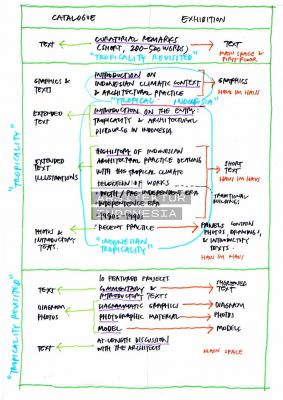 CATALOGUE EXHIBITION
TEXT CURATORIAL REMARKS TEXT
(SHORT, 200-500 WORDS) MAIN SPACE &
"TROPICALITY REVISITED" FIRST FLOOR
GRAPHICS & INTRODUCTION ON GRAPHICS
TEXTS INDONESIAN CLIMATIC CONTEXT HAUS IM HAUS
& ARCHITECTURAL PRACTICE
"TROPICAL INDONESIA"
EXTENDED INTRODUCTION ON THE ENTRY:
TEXT TROPICALITY & ARCHITECTURAL
DISCOURSE IN INDONESIA
"TROPICALITY"
THE HISTORY OF INDONESIAN
EXTENDED ARCHITECTURAL PRACTICE DEALING SHORT
TEXT WITH THE TROPICAL CLIMATE TEXT
ILLUSTRATIONS SELECTION OF WORKS HAUS IM HAUS
PRE-INDEPENDENCE ERA TRADITIONAL
INDEPENDENCE ERA BUILDINGS
ARSITEKTUR
INDONESIA
1980s - 1990
PHOTOS & RECENT PRACTICE PANELS CONTAIN
INTRODUCTORY PHOTOS, DRAWINGS, &
TEXTS "INDONESIAN INTRODUCTORY
TROPICALITY" TEXTS
HAUS IM HAUS
"TROPICALITY REVISITED"
10 FEATURED PROJECTS
TEXT COMMENTARY & SHORTENED
INTRODUCTORY TEXTS TEXT
DIAGRAM DIAGRAMMATIC GRAPHICS DIAGRAM
PHOTOS PHOTOGRAPHIC MATERIAL PHOTOS
MODEL MODELS
TEXT AT-LENGTH DISCUSSION MAIN SPACE
WITH THE ARCHITECTS